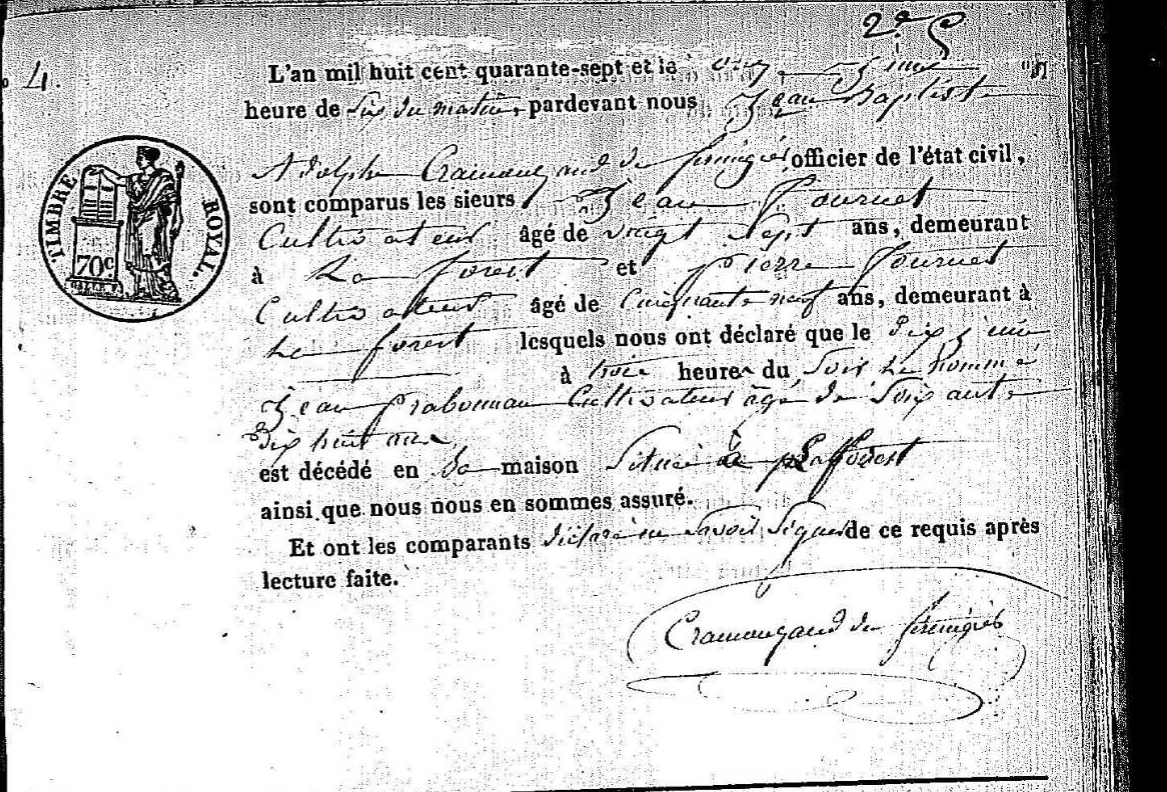 2e
4.
L'an mil huit cent quarante-sept et le onze juin
heure de Six du matin, pardevant nous Jean Baptiste
Adolphe Cramougaud de fermigès officier de l'état civil,
sont comparus les sieurs Jean Fournet
Cultivateur âgé de vingt Sept ans, demeurant
à La forest et pierre Fournet
Cultivateur âgé de Cinquante neuf ans, demeurant à
La forest lesquels nous ont déclaré que le dix juin
à trois heures du Soir Le nommé
Jean Cultivateur âgé de Soixante
dix huit ans
est décédé en Sa maison Située à Lafforest
ainsi que nous nous en sommes assuré.
Et ont les comparants déclaré ne Savoir Signer de ce requis après
lecture faite.
Cramougaud de fermigès
TIMBRE ROYAL.
70c